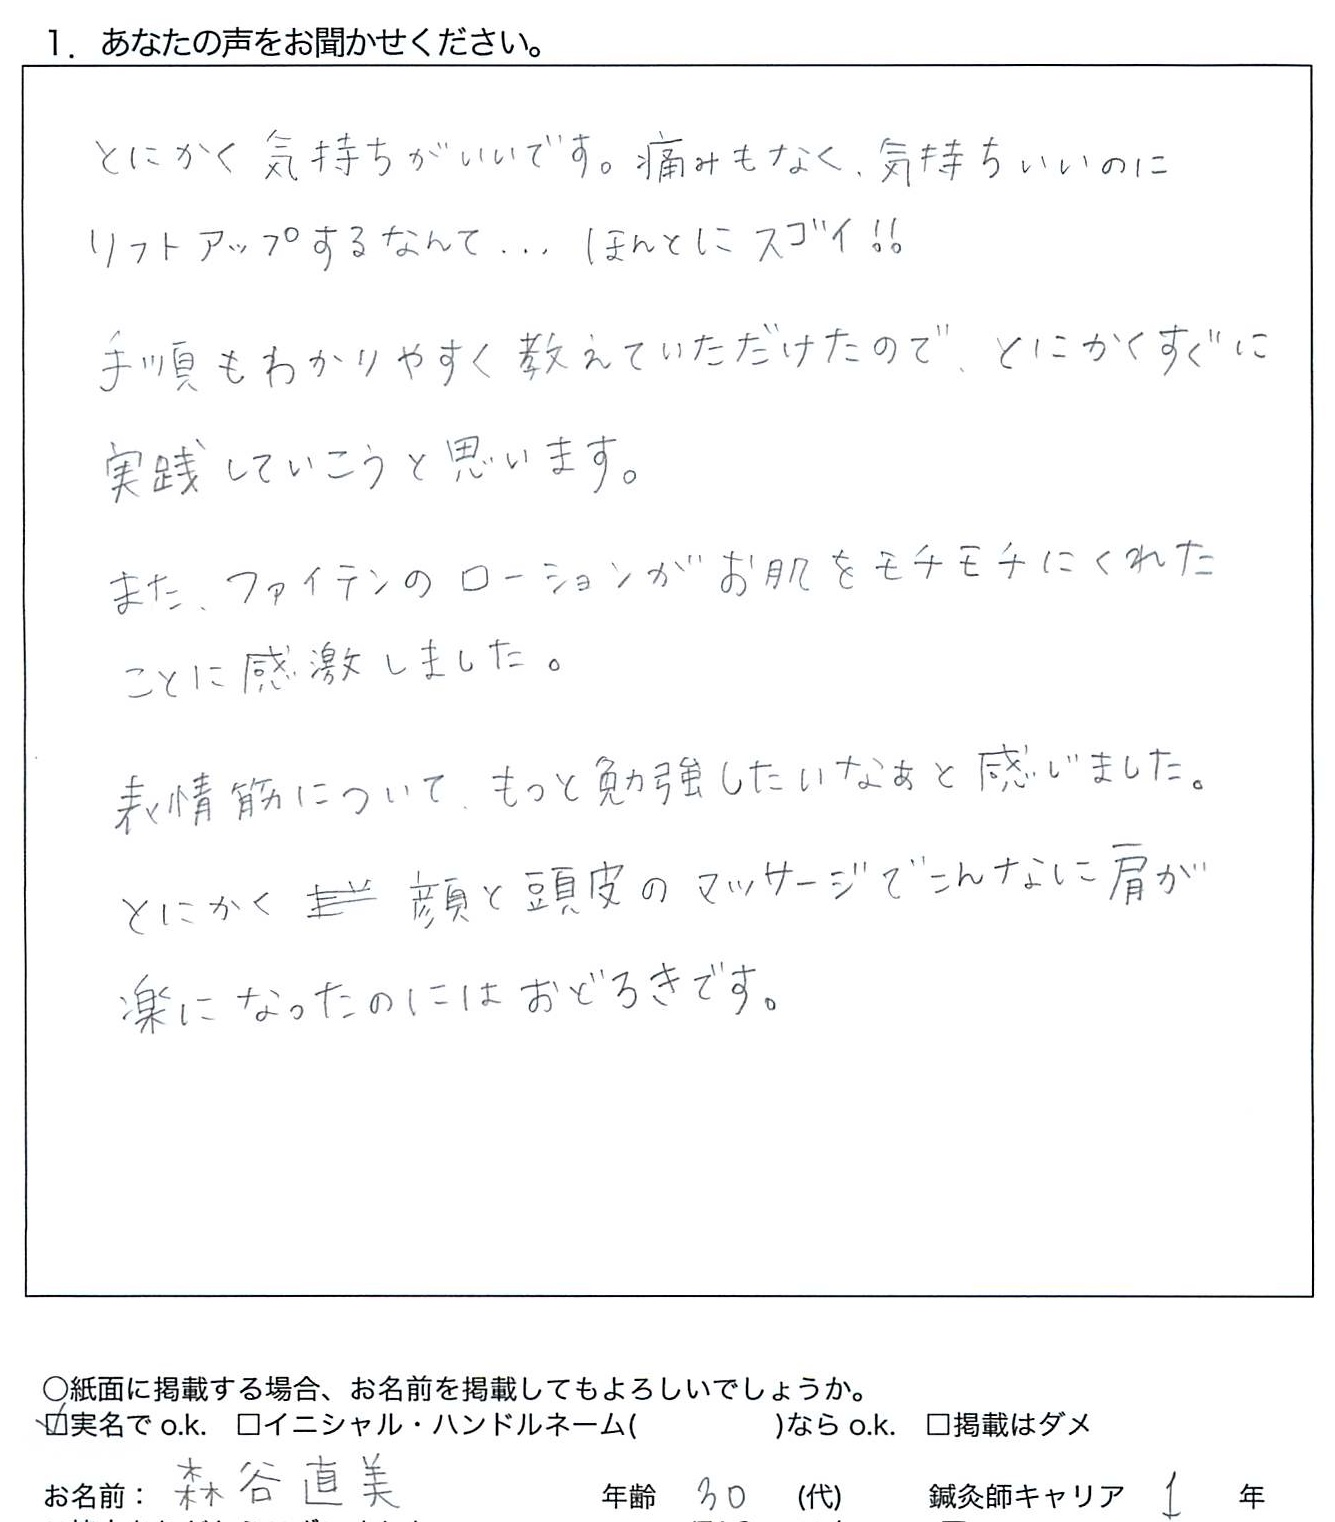 1. あなたの声をお聞かせください。
とにかく気持ちがいいです。痛みもなく、気持ちいいのに
リフトアップするなんて... ほんとにスゴイ!!
手順もわかりやすく教えていただけたので、とにかくすぐに
実践していこうと思います。
また、ファイテンのローションがお肌をモチモチにくれた
ことに感激しました。
表情筋について、もっと勉強したいなぁと感じました。
とにかく 顔と頭皮のマッサージでこんなに肩が
楽になったのにはおどろきです。
○紙面に掲載する場合、お名前を掲載してもよろしいでしょうか。
☑実名で o.k. □イニシャル・ハンドルネーム( )なら o.k. □掲載はダメ
お名前： 森谷直美 年齢 30 (代) 鍼灸師キャリア 1 年